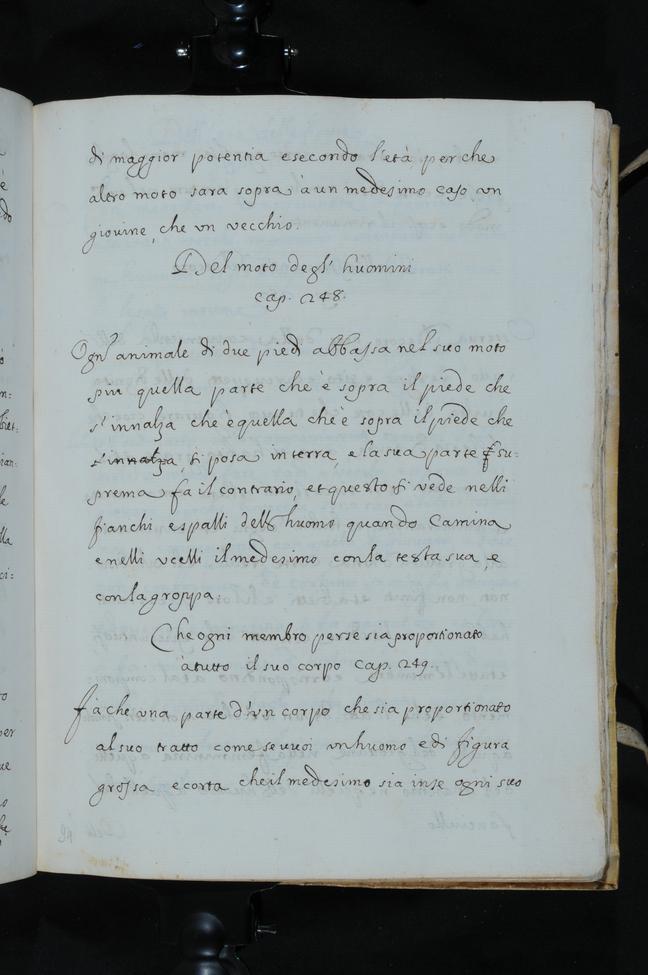 di maggior potentia e secondo l'età, per che
altro moto sara sopra à un medesimo caso vn
giouine, che vn vecchio.
Del moto degl' huomini
cap. 248.
Ogn' animale di due piedi abbassa nel suo moto
piu quella parte che è sopra il piede che
s'innalza che è quella che è sopra il piede che
s'innalza, si posa in terra, e la sua parte su:
prema fa il contrario, et questo si vede nelli
fianchi e spalli dell' huomo quando Camina
e nelli vcelli il medesimo con la testa sua, e
con la groppa.
Che ogni membro per se sia proportionato
à tutto il suo corpo cap. 249.
Fà che una parte d'vn corpo che sia proportionato
al suo tratto come se vuoi vn huomo e di figura
grossa e corta che il medesimo sia in se ogni suo